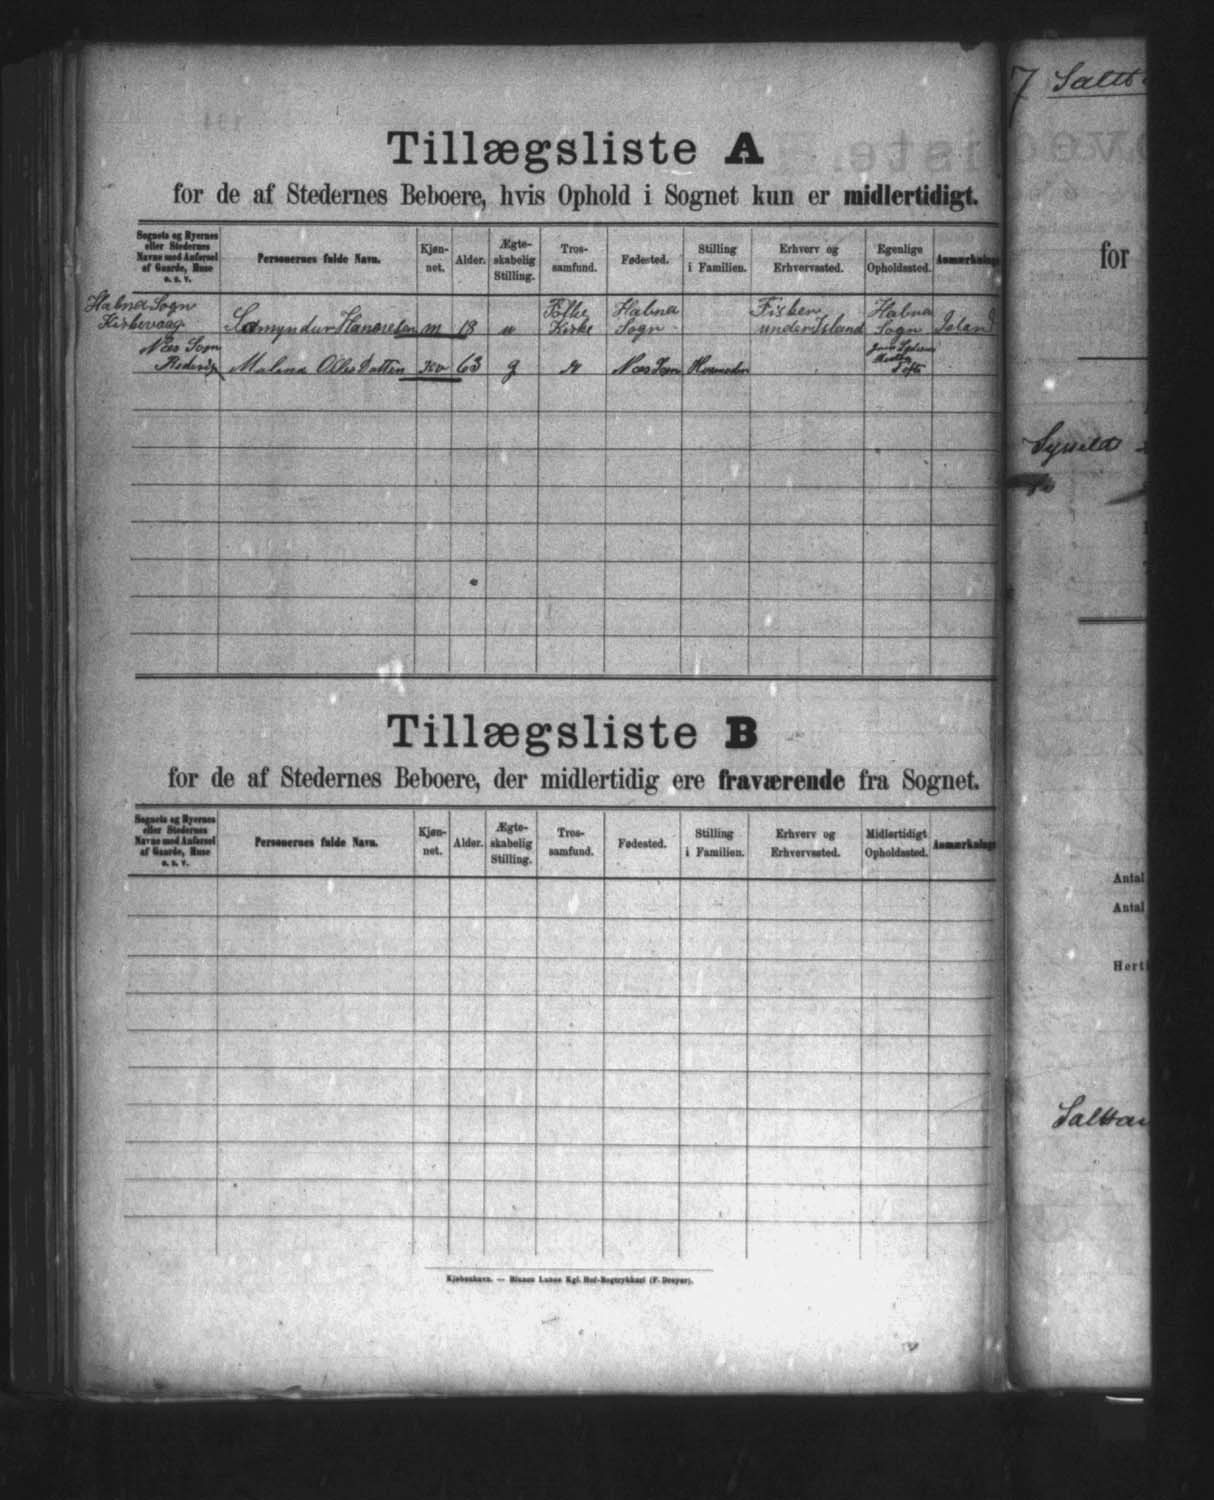 7 Salt
Tillægsliste A
for de af Stedernes Beboere, hvis Ophold i Sognet kun er midlertidigt.
Sognets og Byernes eller Stedernes Navne med Anførsel af Gaarde, Huse o. s. v. Personernes fulde Navn. Kjøn-net. Alder. Ægte-skabelig Stilling. Tros-samfund. Fødested. Stilling i Familien. Erhverv og Erhvervssted. Egenlige Opholdssted. Anmærkning
Folke Fisker
Sogn Kirke Sogn under Island Sogn Island
m 18 u
Næs Sogn
Malena Olesdatter Kv 63 g Næs Sogn Husmoder
Tillægsliste B
for de af Stedernes Beboere, der midlertidig ere fraværende fra Sognet.
Sognets og Byernes eller Stedernes Navne med Anførsel af Gaarde, Huse o. s. v. Personernes fulde Navn. Kjøn-net. Alder. Ægte-skabelig Stilling. Tros-samfund. Fødested. Stilling i Familien. Erhverv og Erhvervssted. Midlertidigt Opholdssted. Anmærkning
Kjøbenhavn. — Bianco Lunos Kgl. Hof-Bogtrykkeri (F. Dreyer).
for
Antal
Antal
Herti